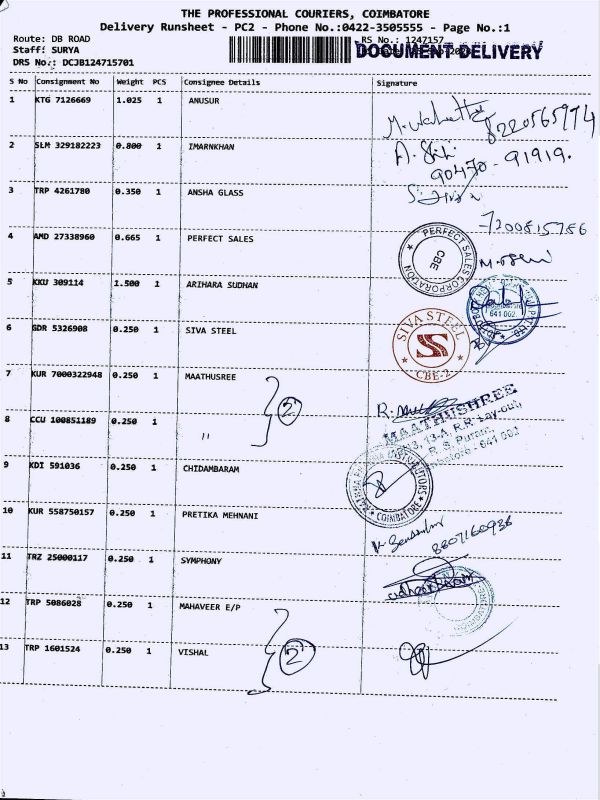 THE PROFESSIONAL COURIERS, COIMBATORE
Delivery Runsheet - PC2 - Phone No.:0422-3505555 - Page No.:1
Route: DB ROAD
RS No.: 1247157
Staff: SURYA
DOCUMENT DELIVERY
DRS No.: DCJB124715701
S No Consignment No Weight PCS Consignee Details Signature
1 KTG 7126669 1.025 1 ANUSUR
8220565974
2 SLM 329182223 0.800 1 IMARNKHAN
90470-91919.
3 TRP 4261780 0.350 1 ANSHA GLASS
7200815786
4 AMD 27338960 0.665 1 PERFECT SALES
PERFECT SALES CORPORATION
CBE
5 KKU 309114 1.500 1 ARIHARA SUDHAN
641 002.
6 GDR 5326908 0.250 1 SIVA STEEL
SIVA STEEL
SS
CBE-2
7 KUR 7000322948 0.250 1 MAATHUSREE
2
MAATHUSHREE
13-A R.R. Lay-out,
R. S. Puram,
Coimbatore - 641 002
8 CCU 100851189 0.250 1 "
9 KDI 591036 0.250 1 CHIDAMBARAM
COIMBATORE
10 KUR 558750157 0.250 1 PRETIKA MEHNANI
8807160936
11 TRZ 25000117 0.250 1 SYMPHONY
12 TRP 5086028 0.250 1 MAHAVEER E/P
2
13 TRP 1601524 0.250 1 VISHAL